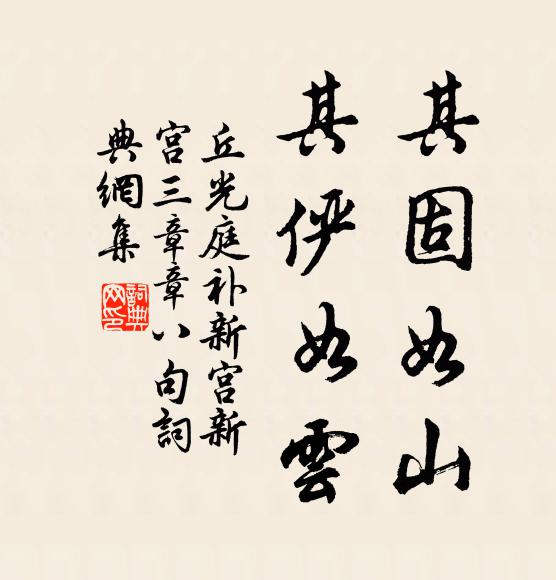 其固如山
其俨如雲
丘光庭补新宫新
宫三章章八句詞
典網集
詞典网印